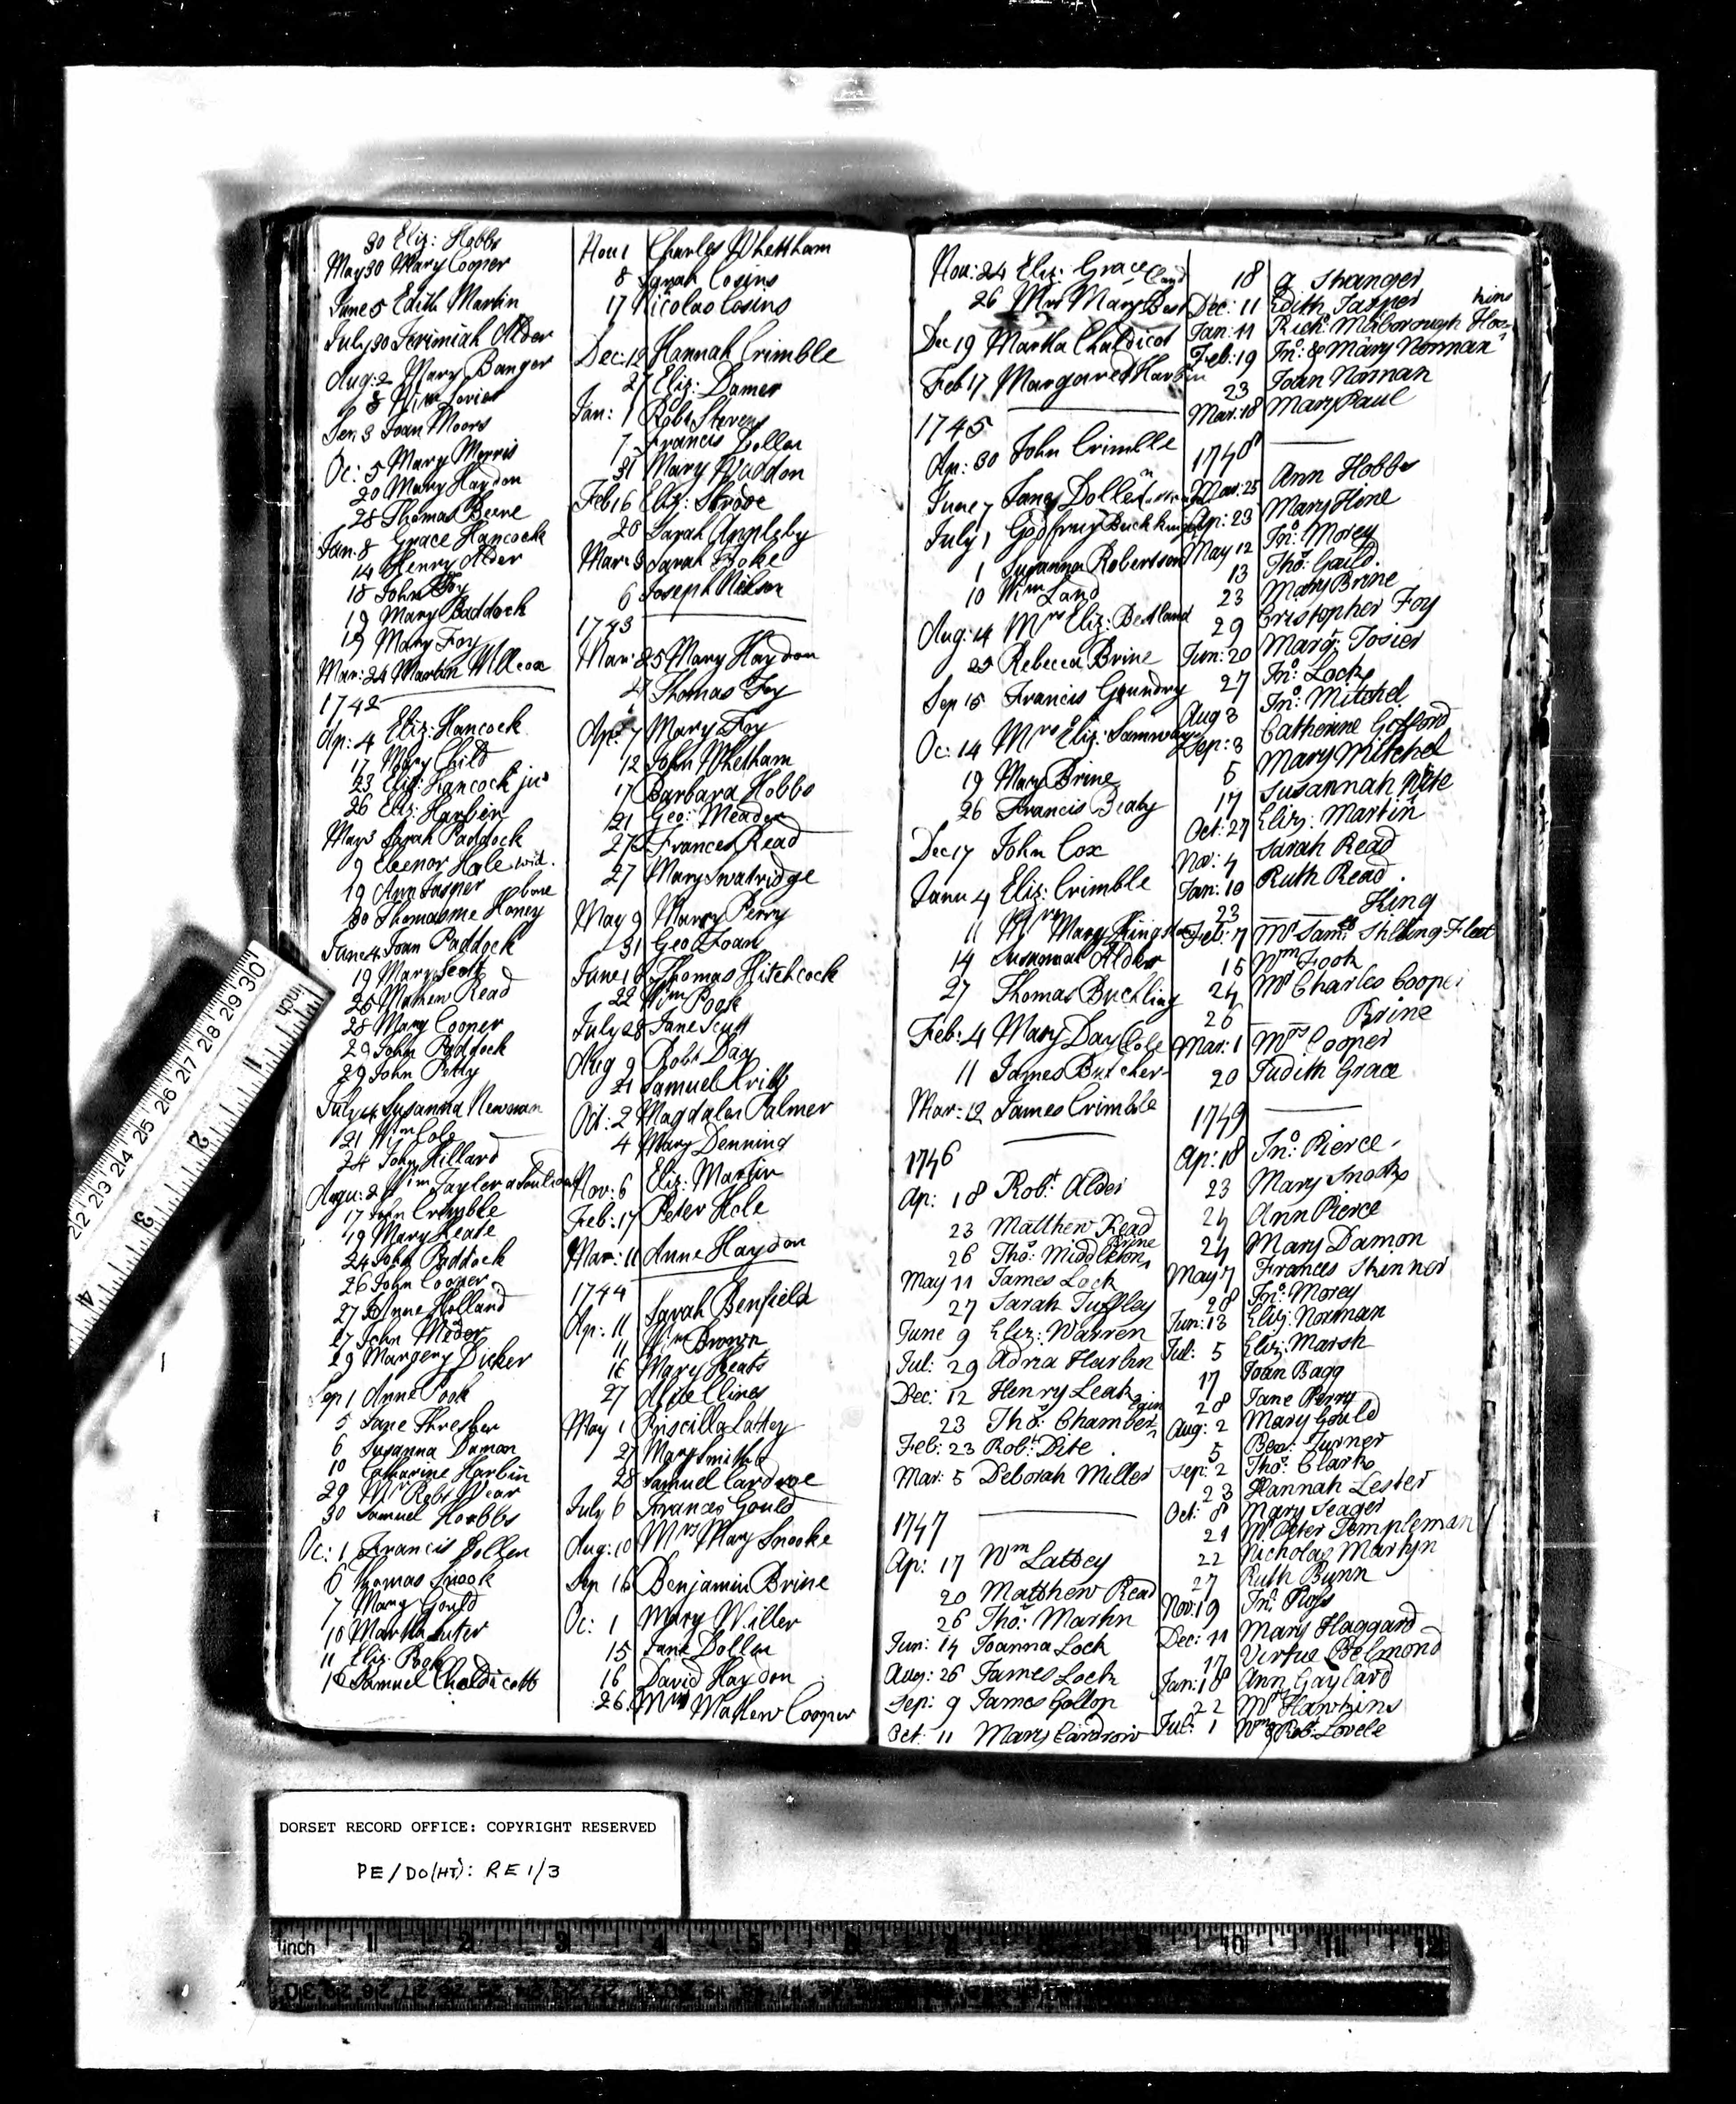 30 Eliz: Hobbs
May 30 Mary Cooper
June 5 Edith Martin
July 30 Jerimiah Alder
Aug: 2 Mary Banger
8 Wm
Sep. 3 Joan Moors
Oc: 5 Mary Morris
20 Mary Haydon
28 Thomas Beere
Jan: 8 Grace Hancock
14 Henry Alder
18 John Foy
19 Mary Paddock
19 Mary Foy
Mar: 24 Martin Willcox
1742
Ap: 4 Eliz: Hancock
17 Mary Child
23 Eliz: Hancock junr
26 Eliz: Harbin
May 3 Sarah Paddock
9 Eleenor Hale wid.
19 Ann Jasper
30 Thomasine Honey bone
June 4 Joan Paddock
19 Mary Scott
26 Mathew Read
28 Mary Cooper
29 John Paddock
29 John Petty
July 4 Susanna Newman
21 Wm Cole
24 John Hillard
Augu: 2 Wm Tayler a Souldier
17 John Crimble
19 Mary Keate
24 John Paddock
26 John Cooper
27 Anne Holland
27 John Meder
29 Margery Dicker
Sep 1 Anne Pook
5 Jane Thresher
6 Susanna Damon
10 Catharine Harbin
29 Mr Robt Wear
30 Samuel Hobbs
Oc: 1 Francis Dollen
6 Thomas Snook
7 Mary Gould
10 Martha
11 Eliz: Pook
Samuel Chaldicott
Nou 1 Charles Whettham
8 Sarah Cosins
17 Nicolas Cosins
Dec: 12 Hannah Crimble
27 Eliz: Damer
Jan: 1 Robt Stevens
7 Francis Dollen
31 Mary Waddon
Feb 16 Eliz: Strode
20 Sarah Appleby
Mar: 3 Sarah
6 Joseph Nelson
1743
Mar: 25 Mary Haydon
27 Thomas Foy
Ap: 7 Mary Foy
12 John Whetham
17 Barbara Hobbs
21 Geo: Meader
27 Frances Read
27 Mary Swatridge
May 9 Marry Perry
31 Geo: Foan
June 16 Thomas Hitchcock
22 Wm Poope
July 28 Jane Scutt
Aug 9 Robt Day
21 Samuel
Oct: 2 Magdalen Palmer
4 Mary Denning
Nov: 6 Eliz: Martin
Feb: 17 Peter Hole
Mar: 11 Anne Haydon
1744
Ap: 11 Sarah Benfield
11 Wm Brown
16 Mary Keats
27 Alice Clines
May 1 Priscilla Lattey
27 Mary Smith
28 Samuel Cardroe
July 6 Frances Gould
Aug: 10 Mrs Mary Snooke
Sep 16 Benjamin Brine
Oc: 1 Mary Willer
15 Jane Dollen
16 David Haydon
26 Mathew Cooper
Nou: 24 Eliz: Grace
26 Mrs Mary Best
Dec 19 Martha Chaldicot
Feb 17 Margaret Harbin
1745
Ap: 30 John Crimble
June 7 Jane Dollen
July 1 Godfrey Buckking
1 Susanna Robertson
10 Wm Land
Aug: 14 Mrs Eliz: Bestland
25 Rebecca Brine
Sep 15 Francis Grundry
Oc: 14 Mrs Eliz: Samways
19 Mary Brine
26 Francis Bealy
Dec 17 John Cox
Janu 4 Eliz: Crimble
11 Mrs Mary
14 Susannah Alder
27 Thomas Buckling
Feb: 4 Mary Day Cole
11 James Butcher
Mar: 12 James Crimble
1746
Ap: 18 Robt Alder
23 Matthew Read
26 Tho: Middleton
May 11 James Lock
27 Sarah Tuffley
June 9 Eliz: Warren
Jul: 29 Adria Harbin
Dec: 12 Henry Leak
23 Tho: Chamberlain
Feb: 23 Robt: Pite
Mar: 5 Deborah Miller
1747
Ap: 17 Wm Lattey
20 Matthew Read
26 Tho: Martin
Jun: 14 Joanna Lock
Aug: 26 James Lock
Sep: 9 James Gollop
Oct: 11 Mary Cardrow
18 a Stranger
Dec: 11 Edith Jasper
Jan: 11 Rich: Milborough Hoskins
Feb: 19 Jno: & Mary Norman
23 Joan Norman
Mar: 18 Mary Paul
1748
Mar: 25 Ann Hobbs
Ap: 23 Mary Hine
May 12 Jno: Morey
13 Tho: Gauld.
23 Mary Brine
29 Cristopher Foy
Jun: 20 Mary: Tosier
27 Jno: Lock
Aug 3 Jno: Mitchel
Sep: 3 Catherine Gifford
5 Mary Mitchel
17 Susannah Pite
Oct: 27 Eliz: Martin
Nov: 4 Sarah Read
Jan: 10 Ruth Read.
23 King
Feb: 7 Mr Saml: Shilling-Fleet
15 Wm Fooh
24 Mr Charles Cooper
26 Brine
Mar: 1 Mrs Cooper
20 Judith Grace
1749
Ap: 18 Jno: Pierce
23 Mary Snooke
24 Ann Pierce
24 Mary Damon
May 7 Frances Skinner
28 Jno: Morey
Jun: 13 Eliz: Norman
Jul: 5 Eliz: Marsh
17 Joan Bagg
28 Jane Perry
Aug: 2 Mary Gould
5 Ben: Turner
Sep: 2 Tho: Clark
23 Hannah Lester
Oct: 8 Mary Seager
21 Mr Peter Templeman
22 Nicholas Martyn
27 Ruth Bunn
Nov: 19 Jno:
Dec: 11 Mary Haggard
17 Virtue Belmond
Jan: 18 Ann Gaylard
22 Mr Hawkins
Jul: 1 Wm & Rob: Lovele
DORSET RECORD OFFICE: COPYRIGHT RESERVED
PE/DO(HT): RE 1/3